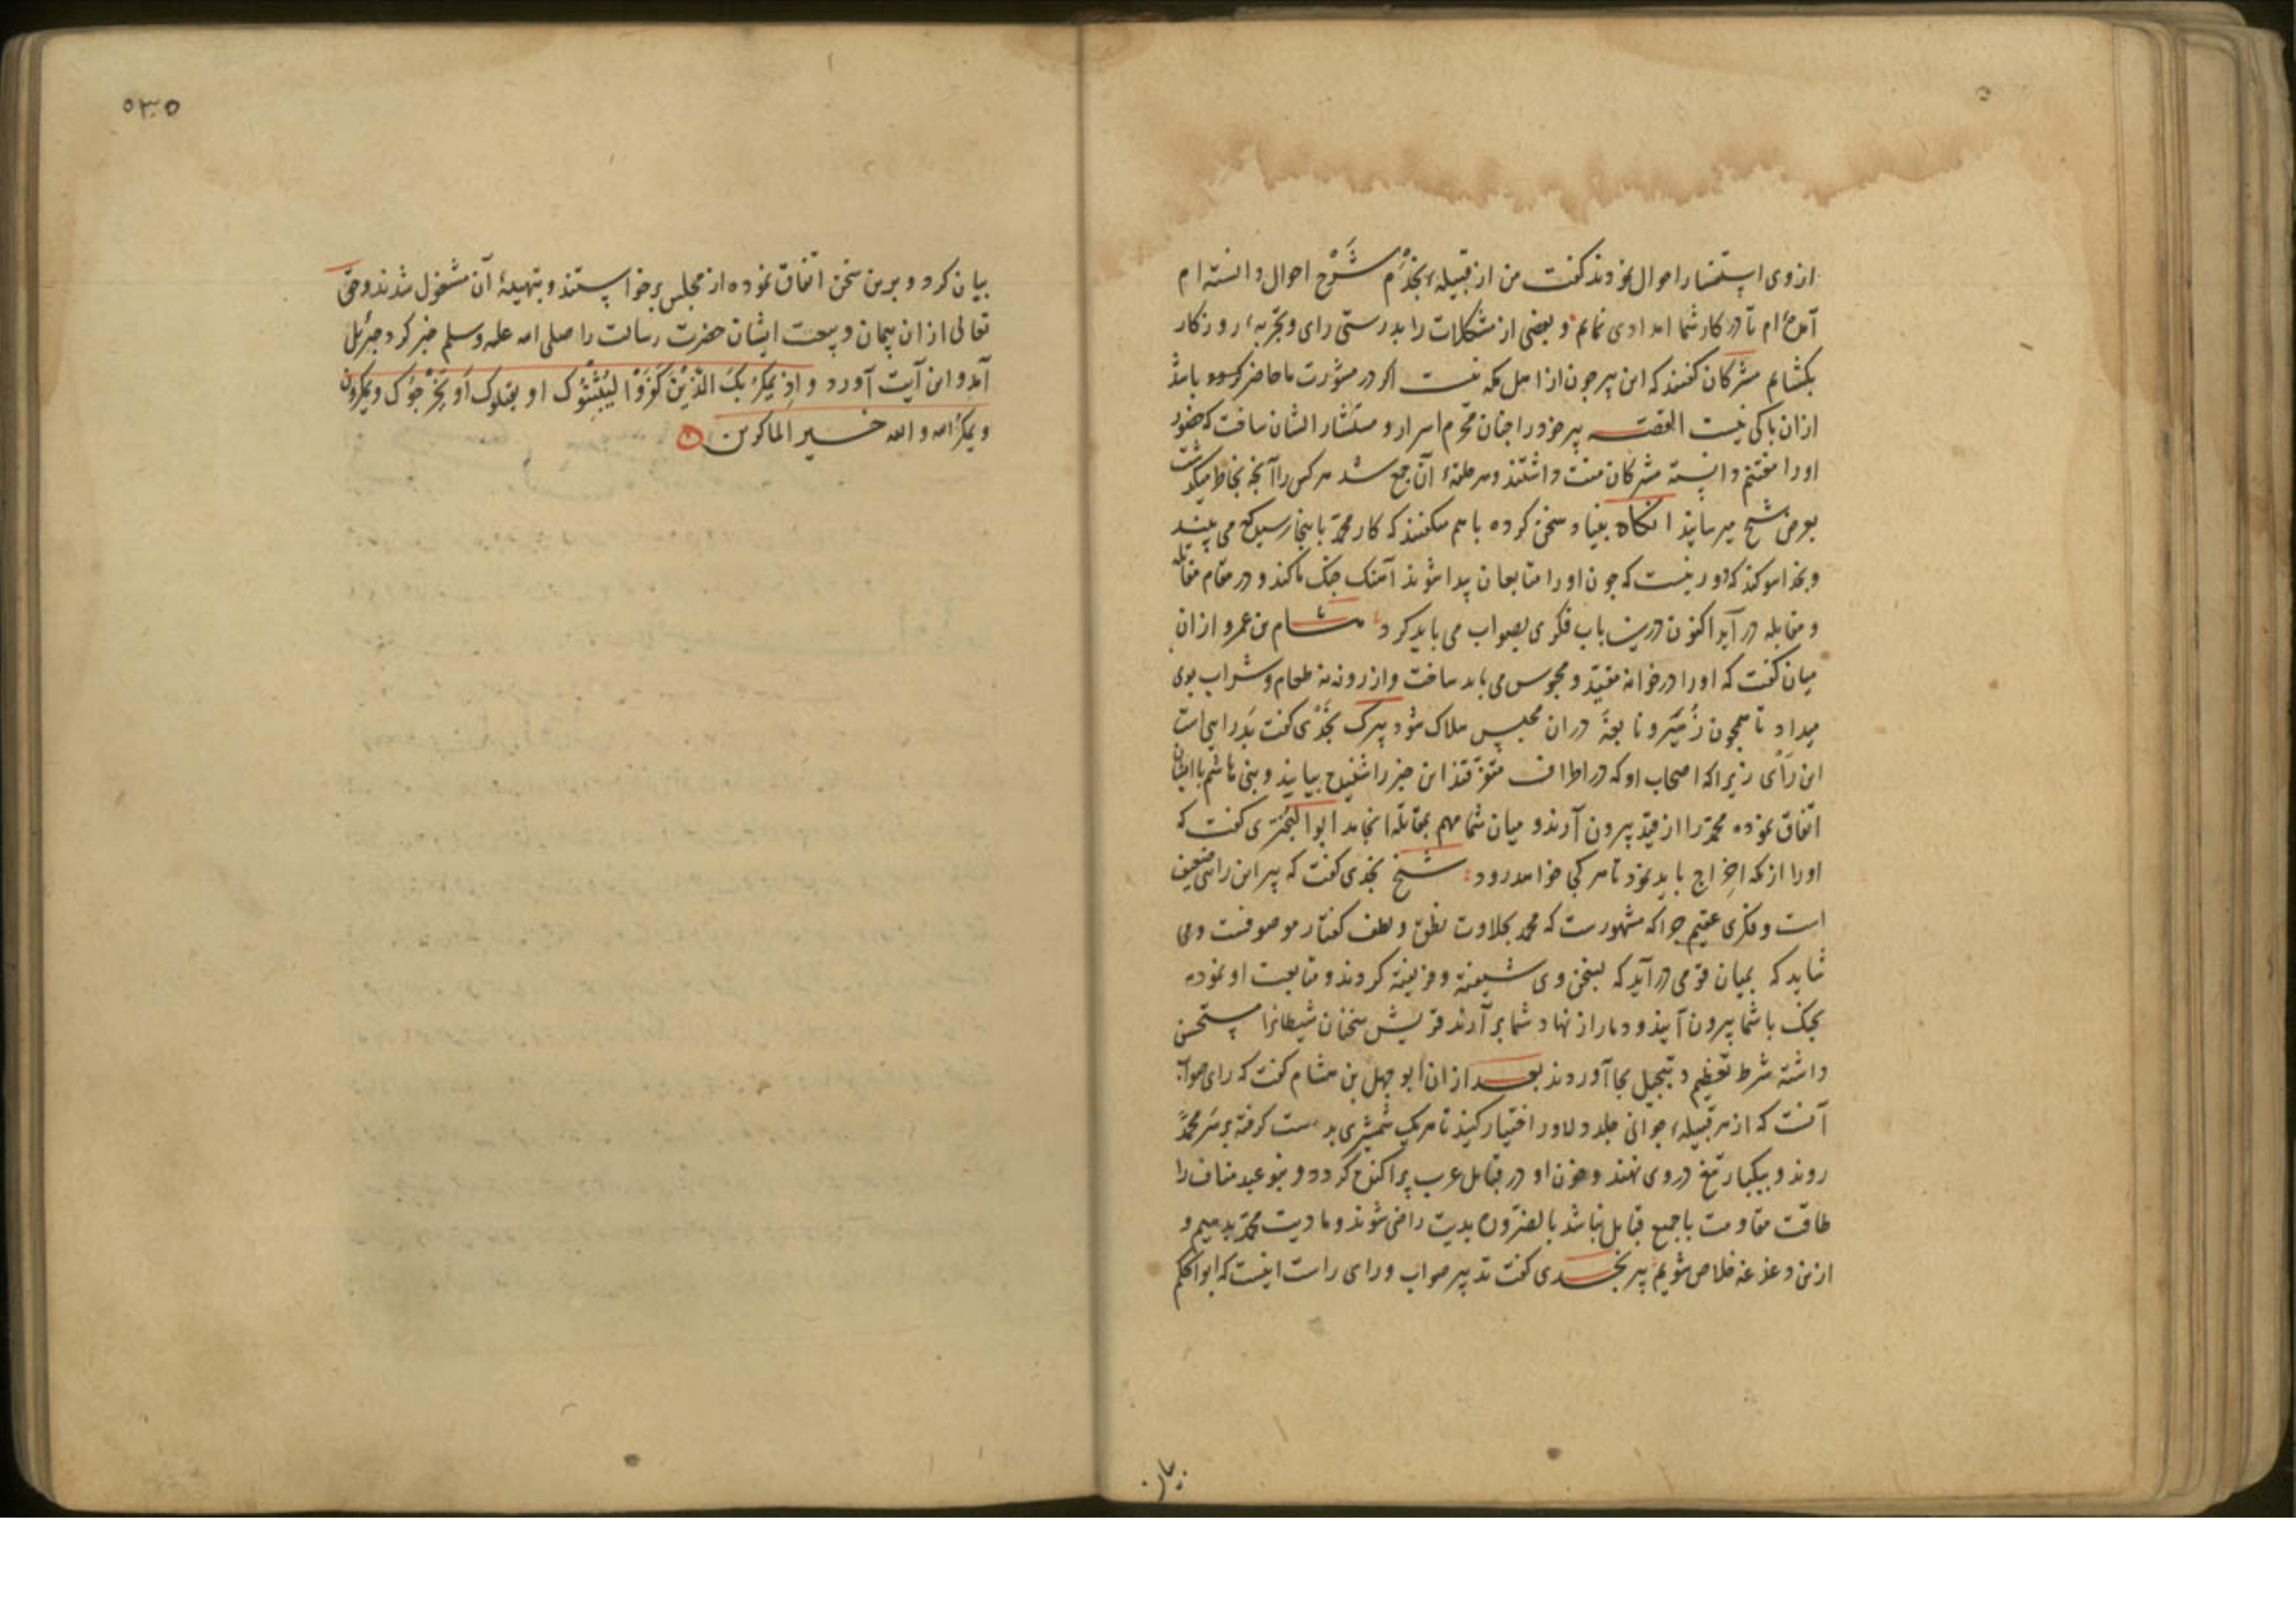 از وی استفسار احوال نمودند گفت من از قبیله نجدم شرح احوال دانسته ام
آمده ام تا در کار شما امدادی نمایم و بعضی از مشکلات را بدرستی رای و تجربهٔ روزگار
بکشایم مشرکان گفتند که این پیر چون از اهل مکه نیست اگر در مشورت ما حاضر باشد
ازان باکی نیست القصه پیر خود را چنان محرم اسرار و مستشار ایشان ساخت که حضور
او را مغتنم دانسته مشرکان منت داشتند و سر حلقهٔ آن جمع شد هر کس را آنچه بخاطر میگذشت
بعرض شیخ میرسانید انکاه بنیاد سخن کرده باهم میگفتند که کار محمد باینجا رسید که می بینید
و بخدا سوکند که دور نیست که چون او را متابعان پیدا شوند آهنگ جنگ ما کند و در مقام مقاتله
و مقابله در آید اکنون درین باب فکری بصواب می باید کرد هشام بن عمرو ازان
میان گفت که او را در خانه مقید و محبوس می باید ساخت و از روزنه طعام و شراب بوی
میداد تا همچون زهیر و نابغه دران محبس هلاک شود پیرک نجدی گفت بد رایی است
این رای زیرا که اصحاب او که در اطراف متفرقند این خبر را شنیده بیایند و بنی هاشم با ایشان
اتفاق نموده محمد را از قید بیرون آرند و میان شما مهم بمقاتله انجامد ابوالبختری گفت که
او را از مکه اخراج باید نمود تا هر کجا خواهد رود شیخ نجدی گفت که پیر این رائی ضعیف
است و فکری عقیم چرا که مشهورست که محمد بحلاوت نطق و لطف گفتار موصوفست و می
شاید که بمیان قومی در آید که بسخن وی شیفته و فریفته کردند و متابعت او نموده
بجنگ با شما بیرون آیند و دمار از نهاد شما بر آرند قریش سخنان شیطانرا مستحسن
داشته شرط تعظیم و تبجیل بجا آوردند بعد ازان ابو جهل بن هشام گفت که رای صواب
آنست که از هر قبیله جوانی جلد و دلاور اختیار کنید تا هر یک شمشیری بدست کرفته بر سر محمد
روند و بیکبار تیغ در وی نهند و خون او در قبایل عرب پراکنده کردد و بنو عبد مناف را
طاقت مقاومت با جمیع قبایل نباشد بالضروره بدیت راضی شوند و ما دیت محمد بدهیم و
ازین دغدغه خلاص شویم پیر نجدی گفت تدبیر صواب و رای راست اینست که ابوالحکم
بیان
۵۳۵
بیان کرد و برین سخن اتفاق نموده از مجلس برخواستند و بتهیهٔ آن مشغول شدند و حق
تعالی ازان پیمان و بیعت ایشان حضرت رسالت را صلی الله علیه وسلم خبر کرد و جبرئیل
آمد و این آیت آورد و اذ یمکر بک الذین کفروا لیثبتوک او یقتلوک او یخرجوک و یمکرون
و یمکر الله و الله خیر الماکرین